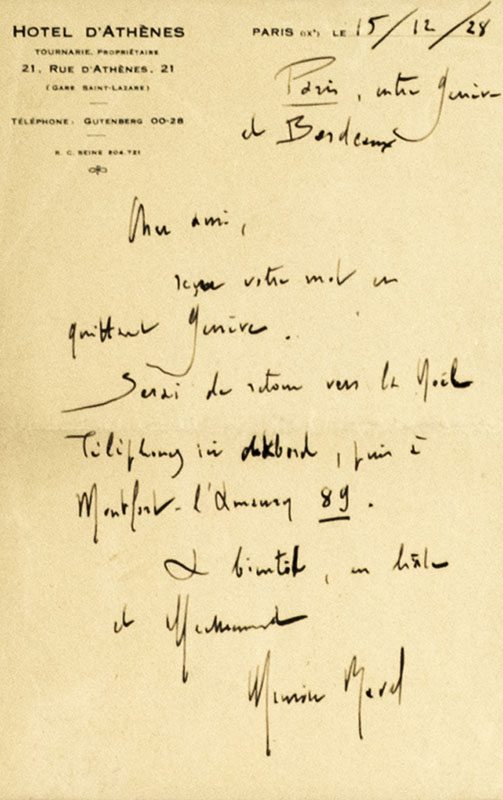 HOTEL D'ATHÈNES
TOURNARIE, PROPRIÉTAIRE
21, RUE D'ATHÈNES, 21
(GARE SAINT-LAZARE)
TÉLÉPHONE: GUTENBERG 00-28
R. C. SEINE 204.721
PARIS (IXe) LE 15/12/28
Paris, entre Genève
et Bordeaux
Cher ami,
reçu votre mot en
quittant Genève.
Serai de retour vers la Noël
Téléphonez ici d'abord, puis à
Montfort-l'Amaury 89.
A bientôt, en hâte
et
Maurice Ravel